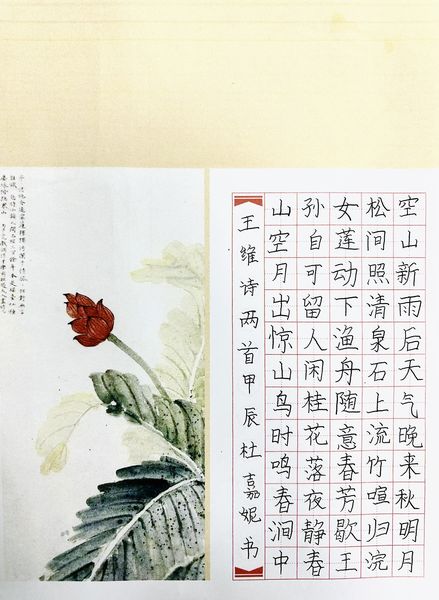 空山新雨后天气晚来秋明月
松间照清泉石上流竹喧归浣
女莲动下渔舟随意春芳歇王
孙自可留人闲桂花落夜静春
山空月出惊山鸟时鸣春涧中
王维诗两首甲辰杜嘉妮书